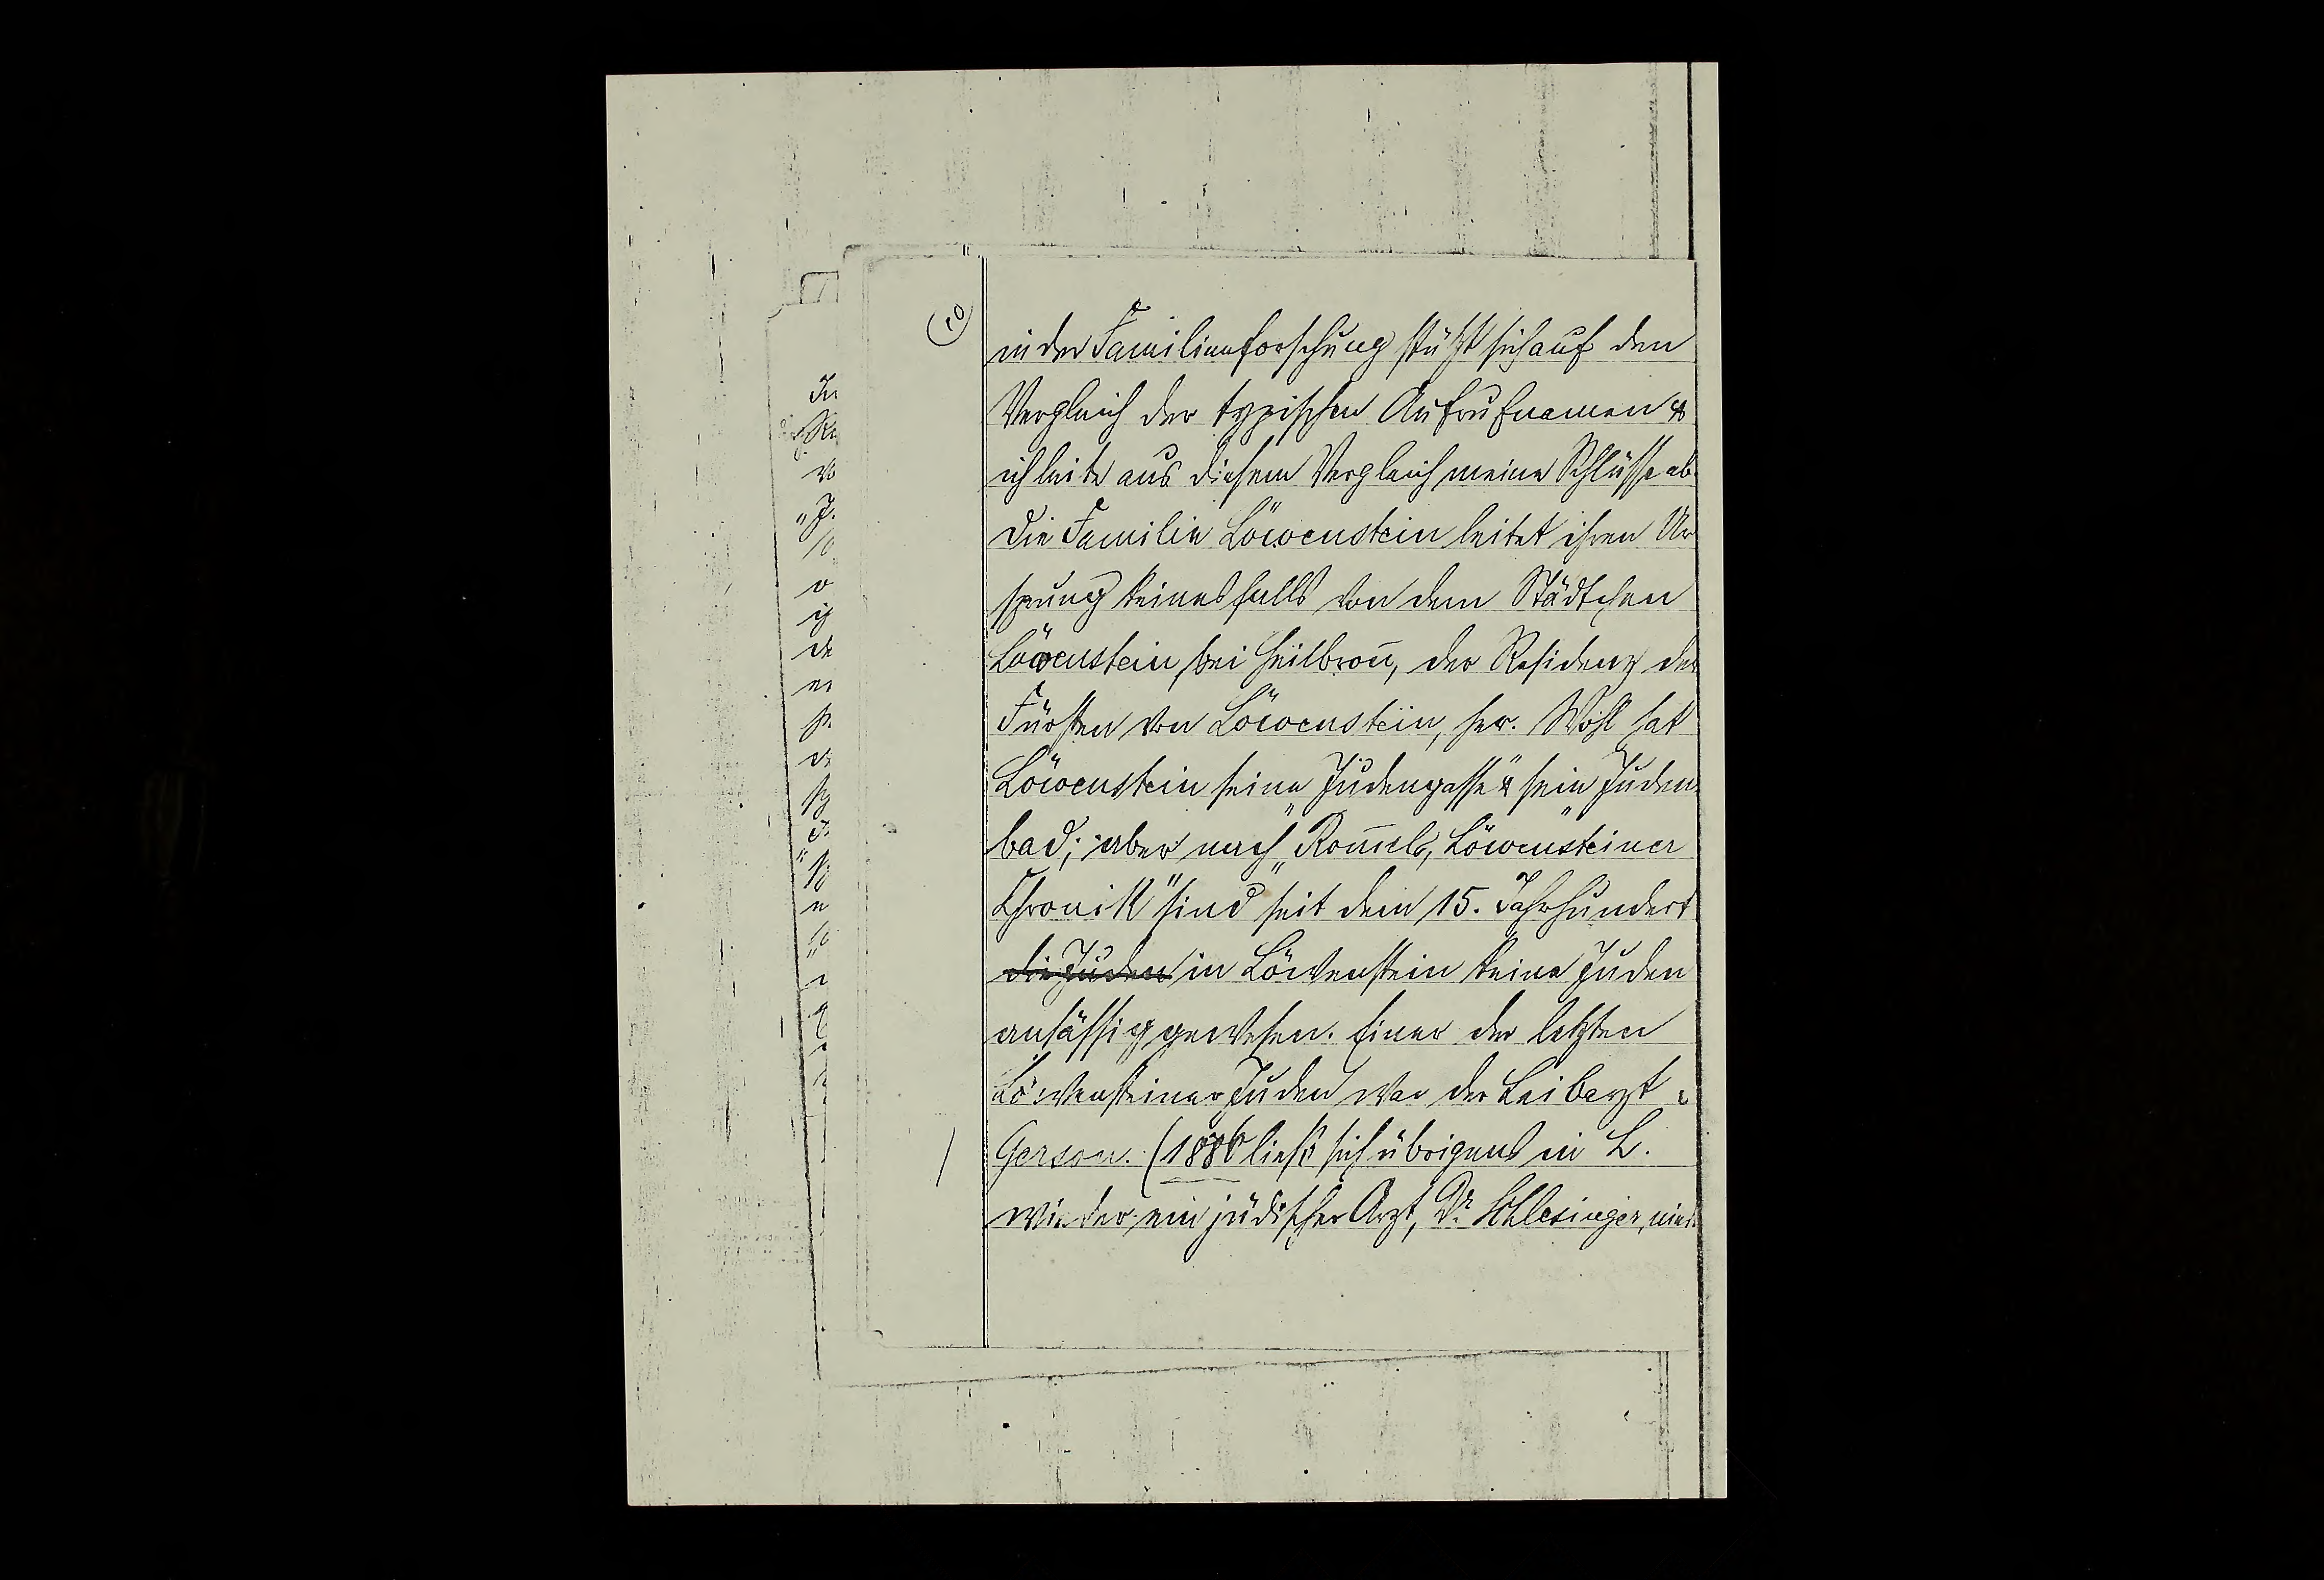 (10)
in der Familienforschung stützt sich auf den
Vergleich der typischen Aufrufnamen &
ich leite aus diesem Vergleich meine Schlüsse ab.
Die Familie Löwenstein leitet ihren Ur
sprung keinesfalls von dem Städtchen
Löwenstein bei Heilbron̅, der Residenz der
Fürsten von Löwenstein, her. Wohl hat
Löwenstein seine Judengasse & sein Juden
bad; aber nach „Rom̅els, Löwensteiner
Chronik" sind seit dem 15. Jahrhundert
die Juden in Löwenstein keine Juden
ansässig gewesen. Einer der letzten
Löwensteiner Juden war der Leibarzt
Gerson. (1886 ließ sich übrigens in L.
wieder ein jüdischer Arzt, Dr Schlesinger,